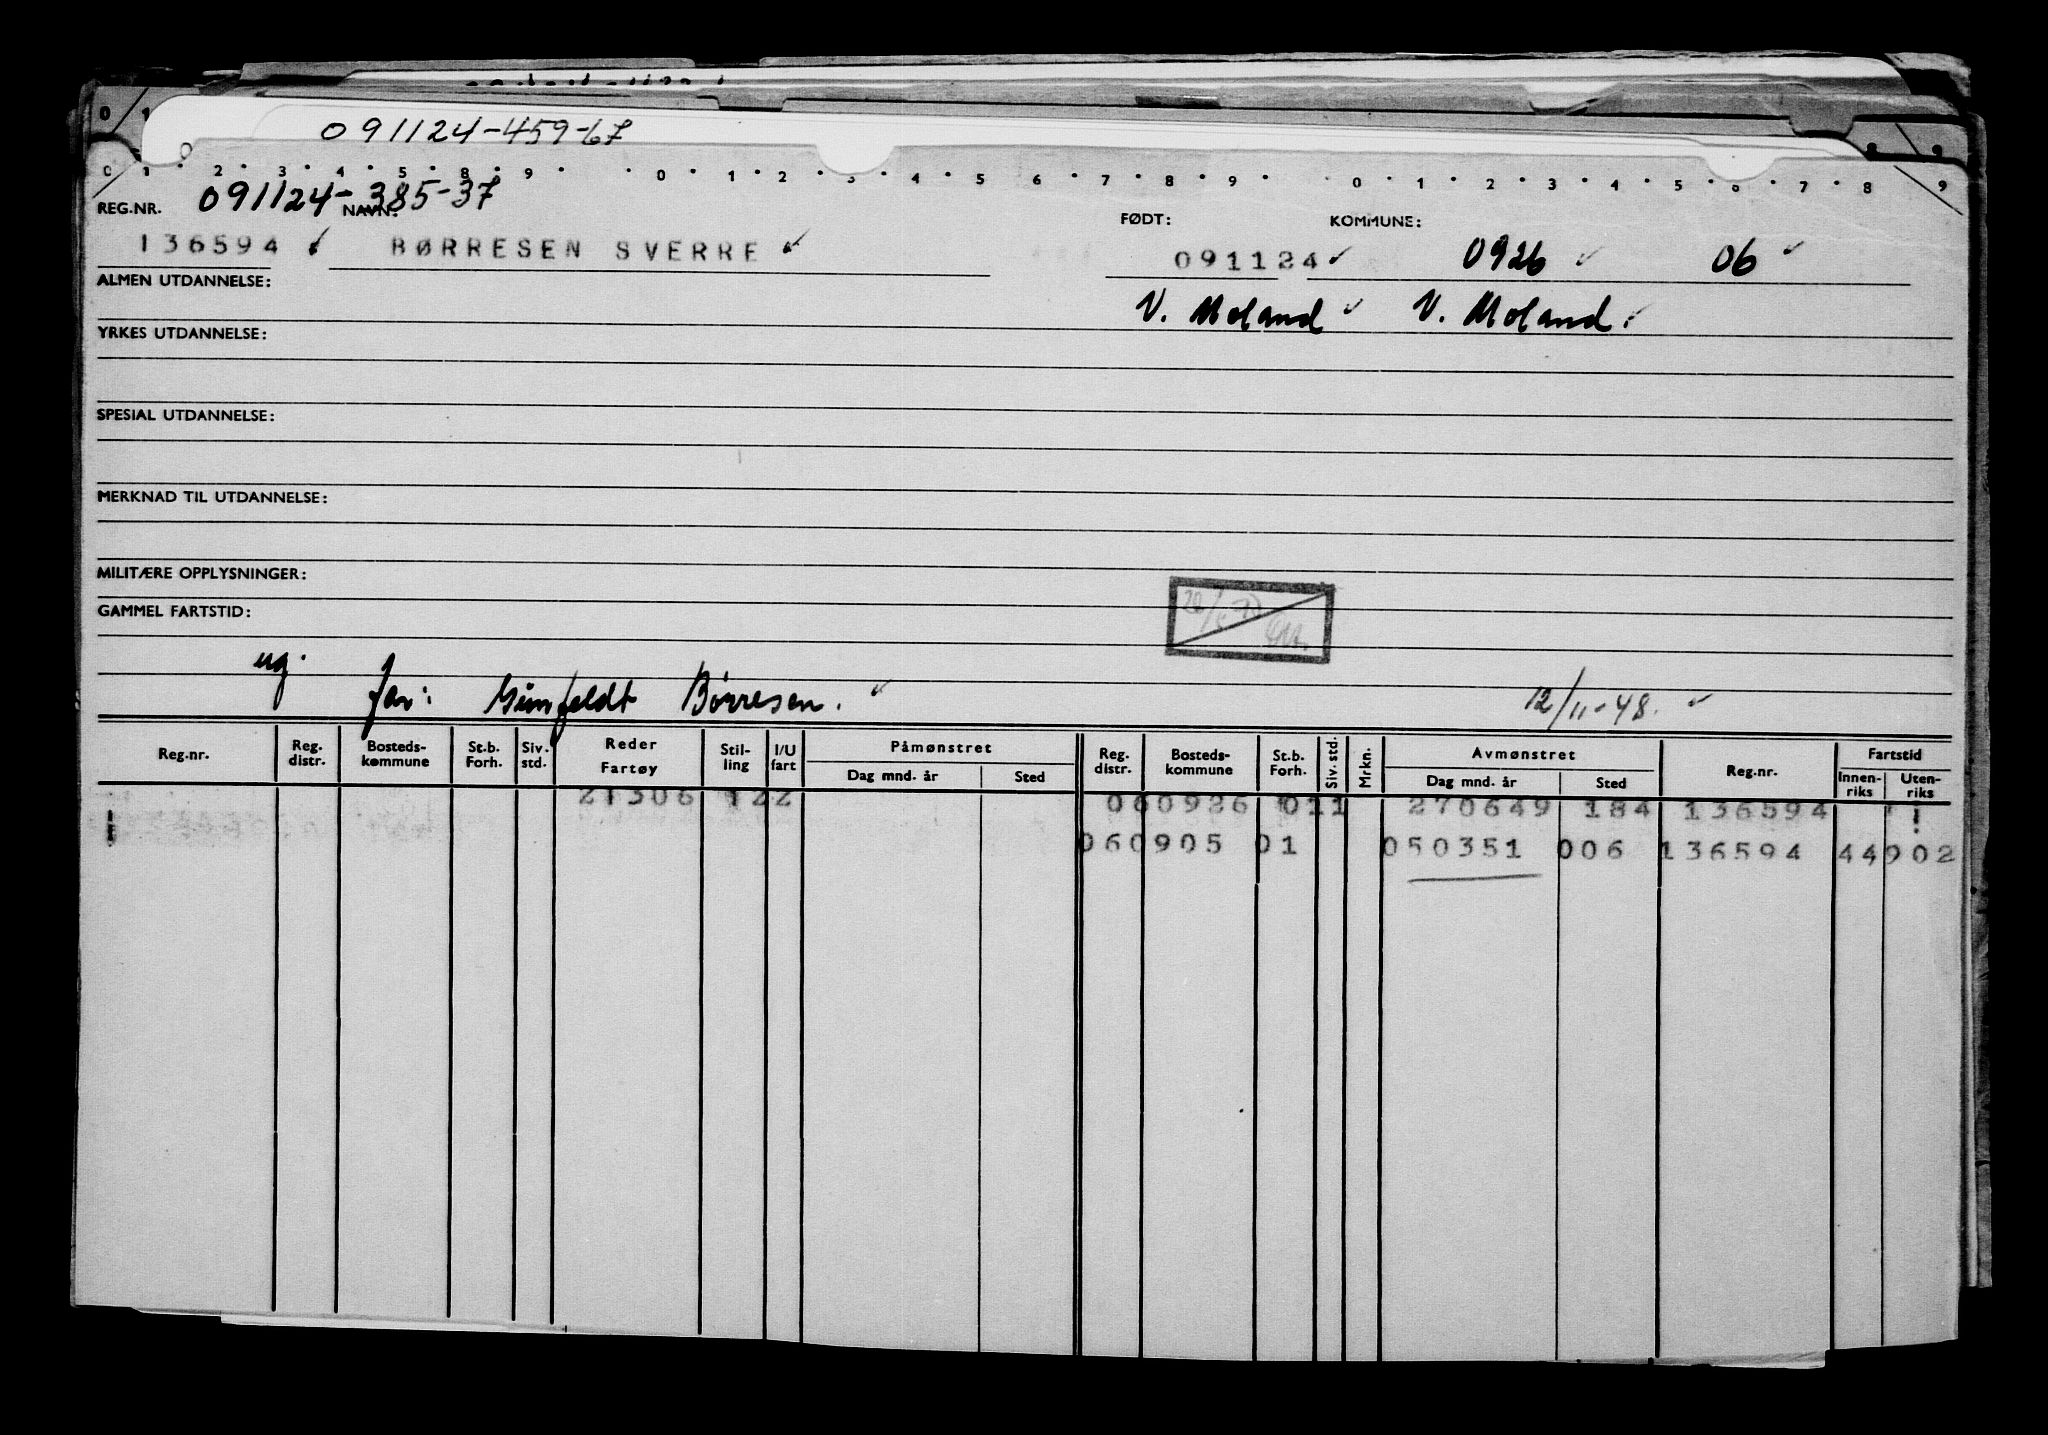 091124-459-67
0 1 2 3 4 5 8 9 0 1 2 3 4 5 6 7 8 9 0 1 2 3 4 5 6 7 8 9
091124-385-37
REG.NR. NAVN: FØDT: KOMMUNE:
136594 ✓ BØRRESEN SVERRE ✓ 091124 ✓ 0926 ✓ 06 ✓
ALMEN UTDANNELSE:
V. Moland ✓ V. Moland. ✓
YRKES UTDANNELSE:
SPESIAL UTDANNELSE:
MERKNAD TIL UTDANNELSE:
MILITÆRE OPPLYSNINGER:
GAMMEL FARTSTID:
ug.
far: Gunfeldt Børresen. ✓ 12/11-48. ✓
Reg.nr. Reg. distr. Bosteds-kommune St.b. Forh. Siv. std. Reder Fartøy Stil-ling I/U fart Påmønstret Dag mnd. år Sted Reg. distr. Bosteds-kommune St.b. Forh. Siv. std. Mrkn. Avmønstret Dag mnd. år Sted Reg.nr. Fartstid Innen-riks Uten-riks
21306 122 060926 011 270649 184 136594
060905 01 050351 006 136594 44902